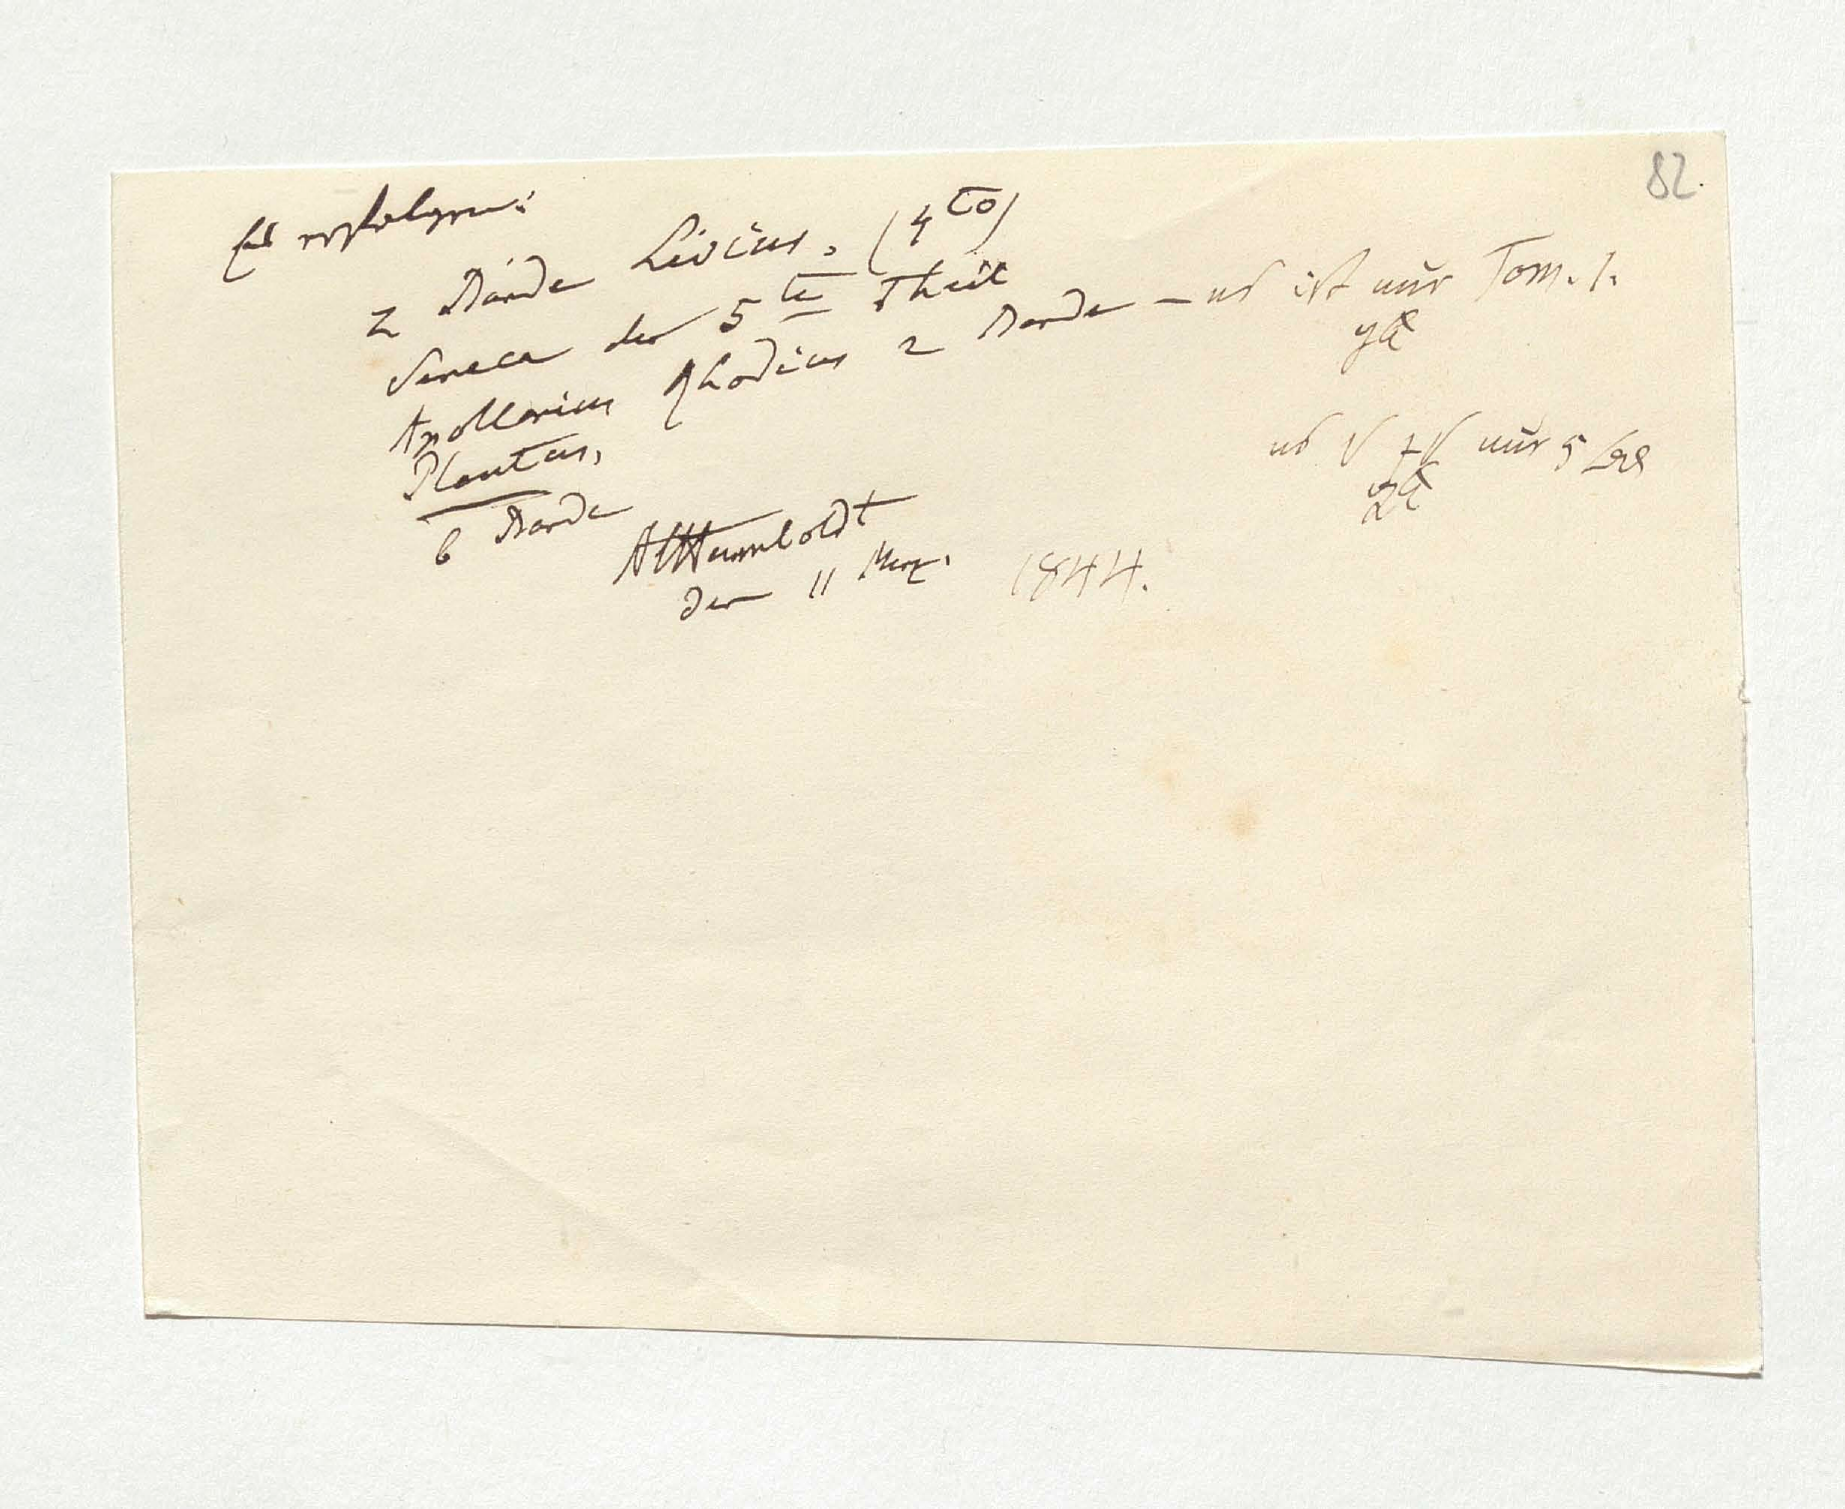 82.
Es erfolgen:
2 Bände Livius. (4to)
Seneca der 5te Theil
Apollonius Rhodius 2 Bände — es ist nur Tom. 1.
Plautus,
6 Bände
es nur 5
AlHumboldt
den 11 Merz. 1844.